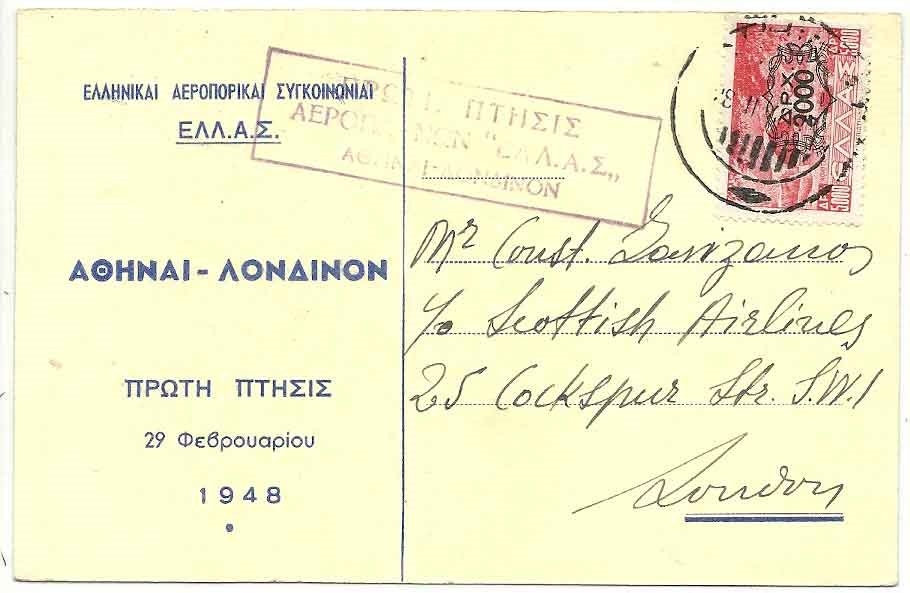 ΕΛΛΗΝΙΚΑΙ ΑΕΡΟΠΟΡΙΚΑΙ ΣΥΓΚΟΙΝΩΝΙΑΙ
ΕΛΛ.Α.Σ.
ΑΘΗΝΑΙ - ΛΟΝΔΙΝΟΝ
ΠΡΩΤΗ ΠΤΗΣΙΣ
29 Φεβρουαρίου
1948
ΠΡΩΤΗ ΠΤΗΣΙΣ
ΑΕΡΟΠΛΑΝΩΝ "ΕΛΛ.Α.Σ,,
ΑΘΗΝΑΙ-ΛΟΝΔΙΝΟΝ
ΔΡΧ.
2000
ΕΛΛΑΣ
5000
Mr Const.
c/o Scottish Airlines
25 Cockspur Str. S.W.1
London